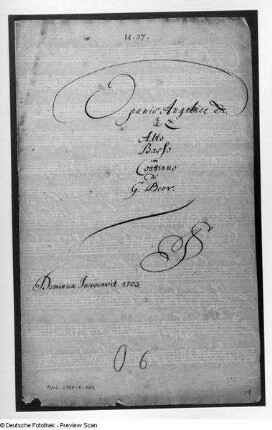 U. 27.
O panis Angelice &c.
à 2
Alto
Basso
con
Continuo
di
G. Beer.
Dominica Invocavit 1703
O. 6
© Deutsche Fotothek - Preview Scan